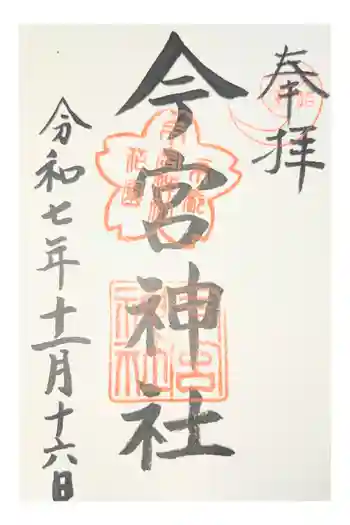 奉拝
今宮神社
令和七年十一月十六日